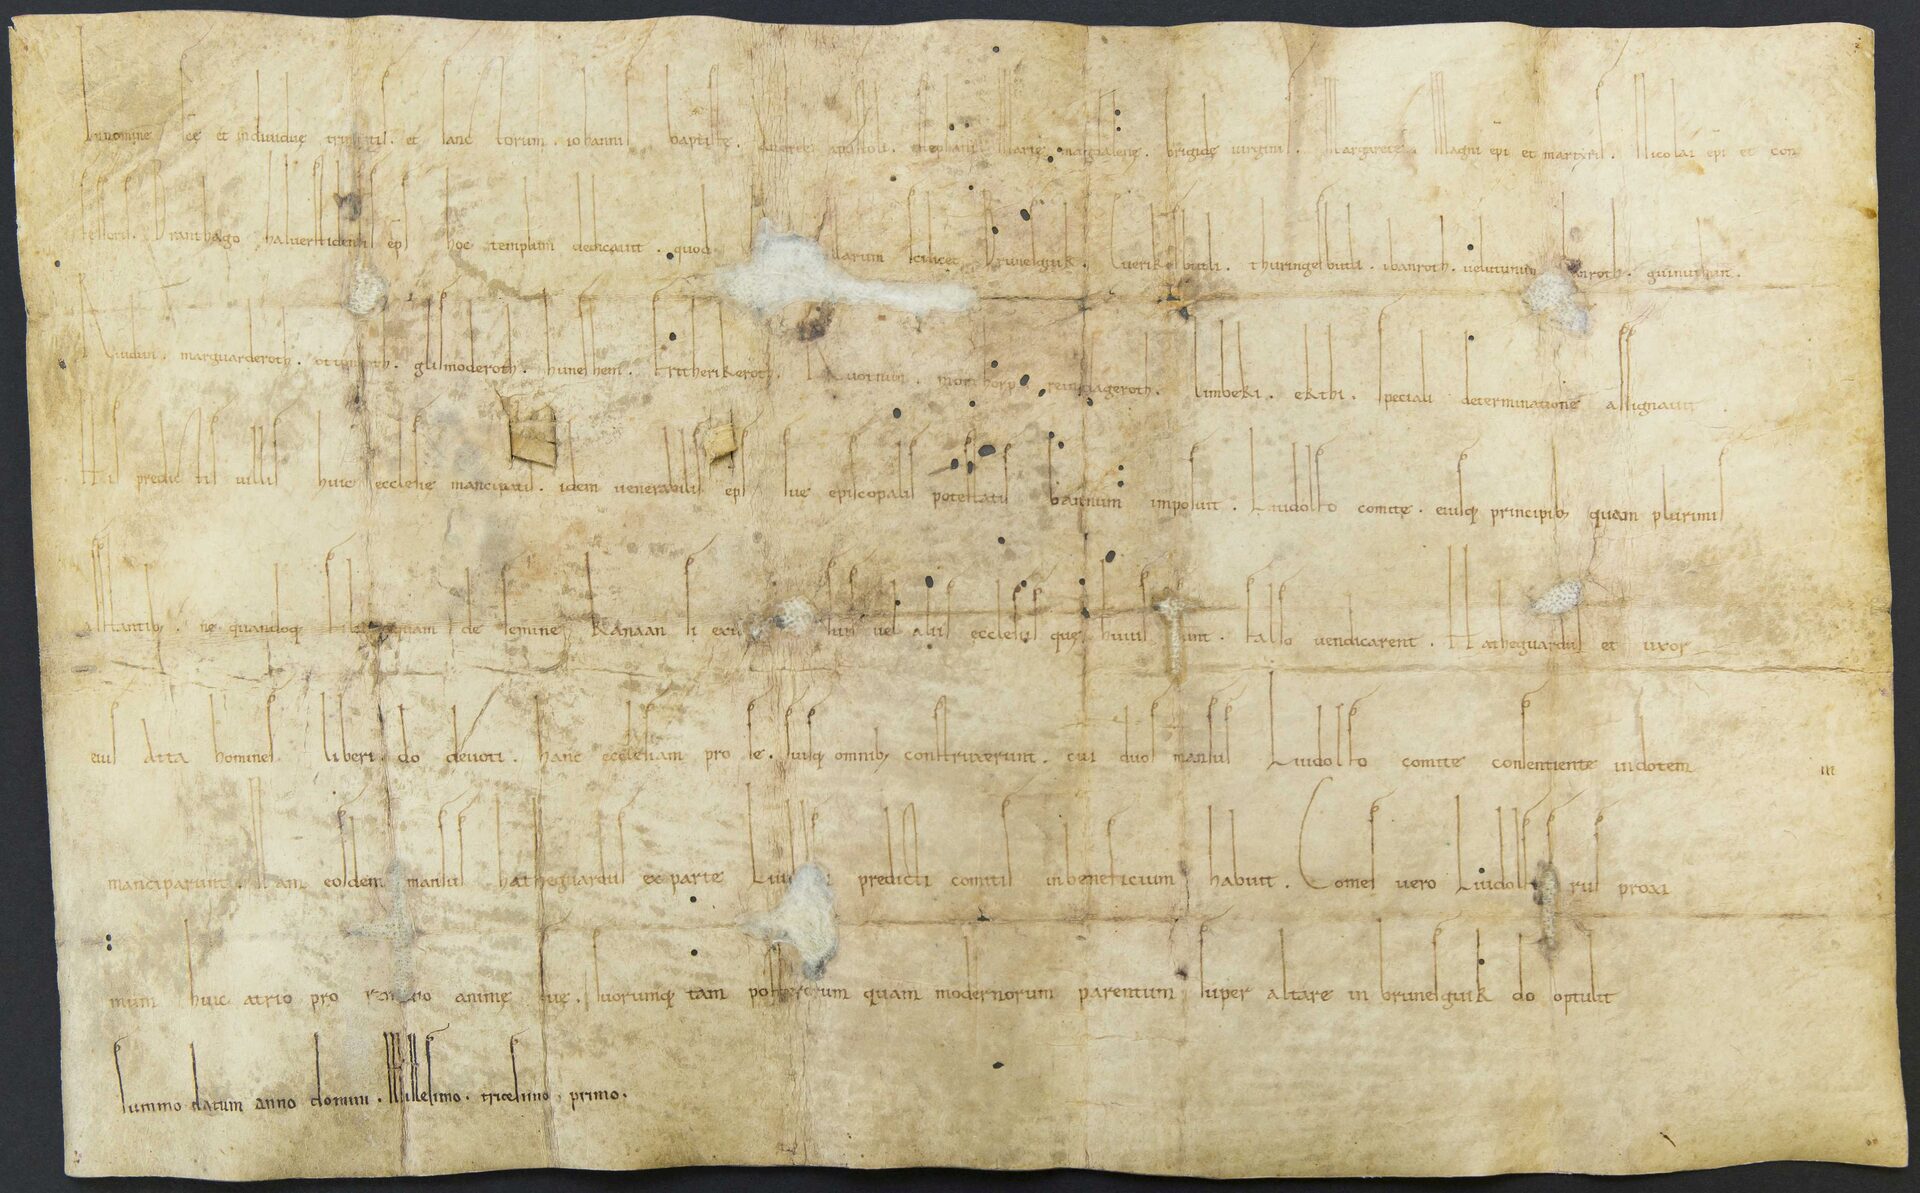 In nomine sce et individue trinitatis. et sanctorum. iohannis baptiste. Andree apostoli. stephani. Marie magdalene. brigide virginis. Margarete. Magni epi et martiris. Nicolai epi et con
fessoris. Branthago halverstidensis eps hoc templum dedicavit. quod villarum scilicet Brunesguik. thuringesbutli. ibanroth. guinuthun.
Riudun. marquarderoth. ottonroth. glismoderoth. huneshem. Fritherikeroth. morthorp. reindageroth. limbeki. ekthi. speciali determinatione assignavit.
His predictis villis huic ecclesie mancipatis. idem venerabilis eps sue episcopalis potestatis bannum imposuit. Liudolfo comite. eiusq principib quam plurimis
astantib. ne quandoq de semine kanaan si vel aliis ecclesiis que huius sunt. falso vendicarent. Hatheguardus et uxor
eius Atta homines liberi. do devoti. hanc ecclesiam pro se. suisq omnib construxerunt. cui duos mansus Liudolfo comite consentiente in dotem
manciparunt. Nam eosdem mansus hatheguardus ex parte predicti comitis in beneficium habuit. Comes vero rus proxi
mum huic atrio pro anime sue. suorumq tam posterorum quam modernorum parentum super altare in brunesguik do optulit
summo datum anno domini. Millesimo. tricesimo. primo.